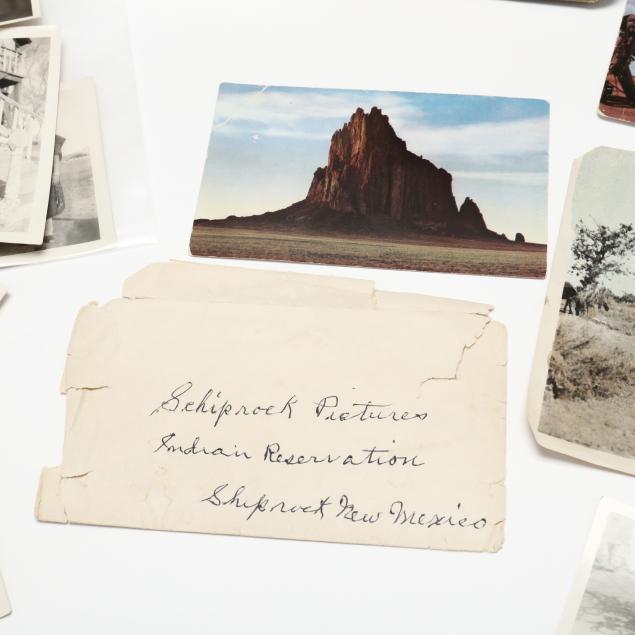 Schiprock Pictures
Indian Reservation
Shiprock New Mexico